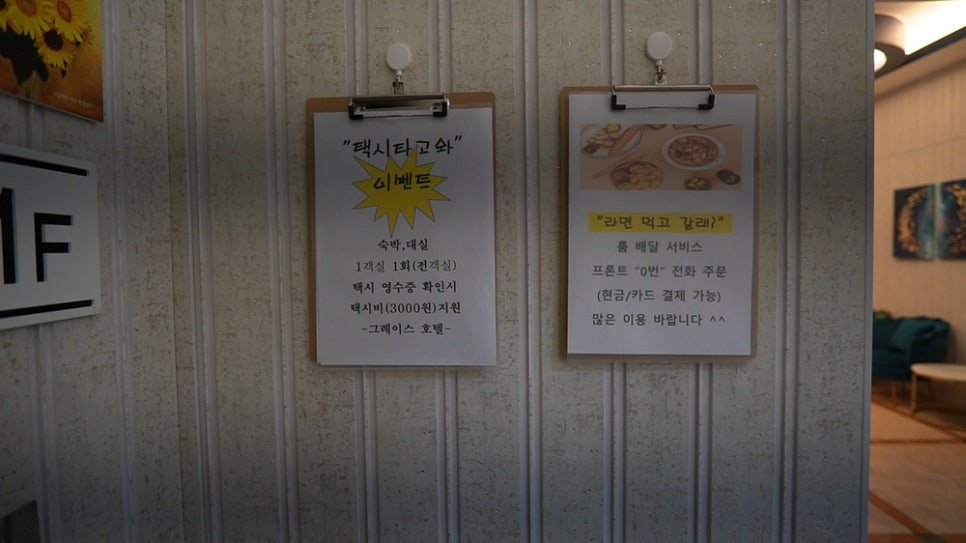 1F
"택시타고와"
이벤트
숙박,대실
1객실 1회(전객실)
택시 영수증 확인시
택시비(3000원)지원
-그레이스 호텔-
"라면 먹고 갈래?"
룸 배달 서비스
프론트 "0번" 전화 주문
(현금/카드 결제 가능)
많은 이용 바랍니다 ^^